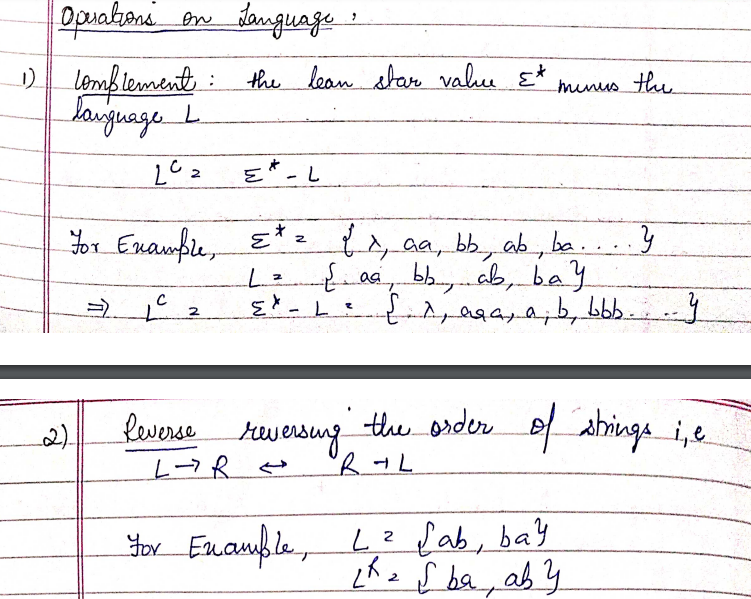 Operations on Language,
1) Complement : the lean star value Σ* minus the
language L
L^C = Σ* - L
For Example, Σ* = { λ, aa, bb, ab, ba.....}
L = { aa, bb, ab, ba}
⇒ L^C = Σ* - L = { λ, aaa, a, b, bbb.....}
2) Reverse reversing the order of strings i,e
L → R ↔ R → L
For Example, L = {ab, ba}
L^R = { ba, ab }